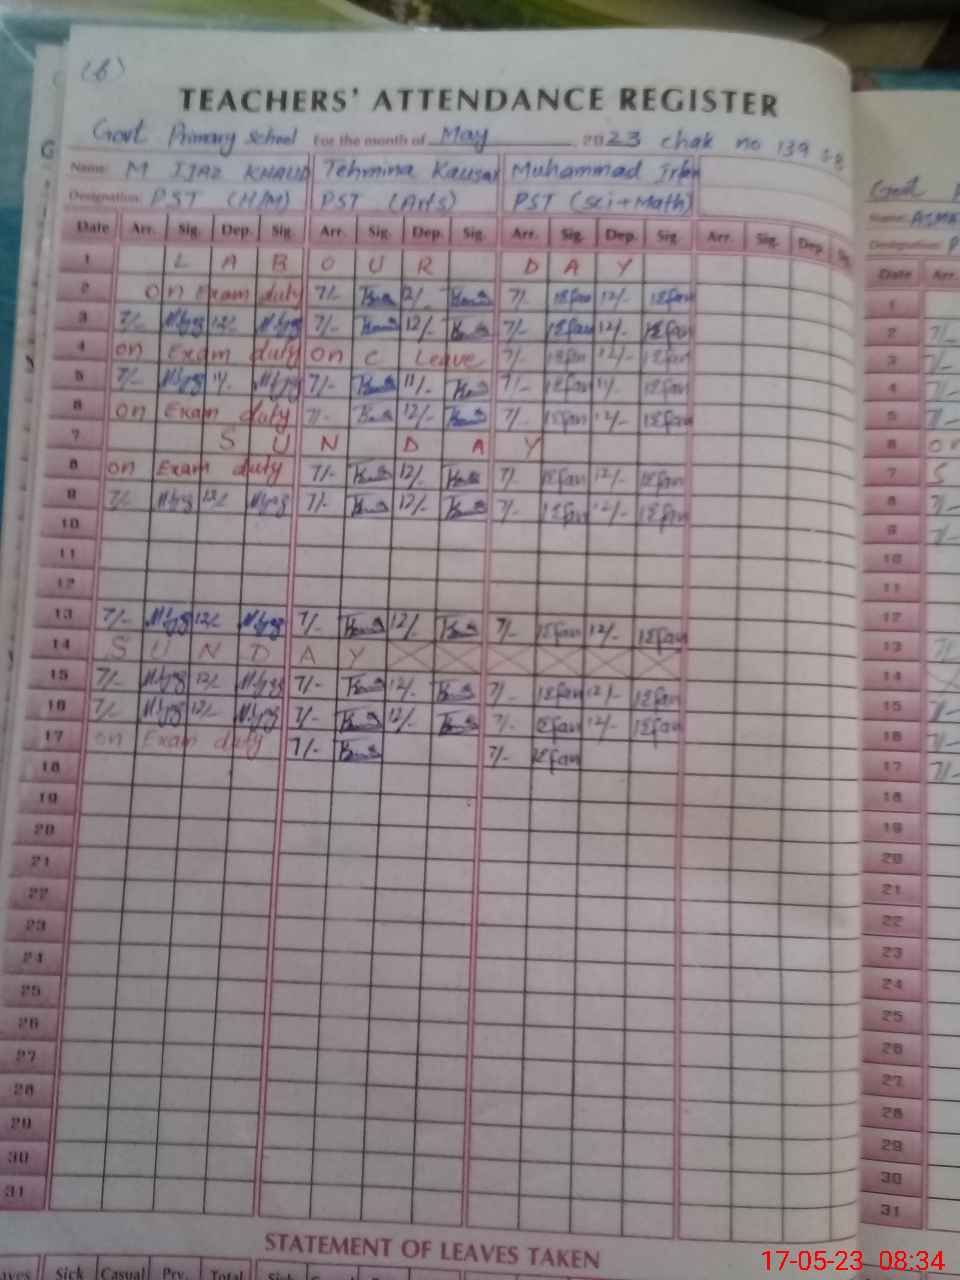 (6)
TEACHERS' ATTENDANCE REGISTER
Govt Primary School For the month of May 2023 chak no 139
Name: M IJAZ KHALID Tehmina Kausar Muhammad Irfan
Designation: PST (H/M) PST (Arts) PST (Sci+Math)
Date Arr. Sig. Dep. Sig. Arr. Sig. Dep. Sig. Arr. Sig. Dep. Sig. Arr. Sig. Dep.
1 L A B O U R D A Y
2 On Exam duty 7/- 12/- 7/- Irfan 12/- Irfan
3 7/- 12/- 7/- 12/- 7/- Irfan 12/- Irfan
4 on Exam duty on C Leave 7/- Irfan 12/- Irfan
5 7/- 11/- 7/- 11/- 7/- Irfan 11/- Irfan
6 on Exam duty 7/- 12/- 7/- Irfan 12/- Irfan
7 S U N D A Y
8 on Exam duty 7/- 12/- 7/- Irfan 12/- Irfan
9 7/- 12/- 7/- 12/- 7/- Irfan 12/- Irfan
10
11
12
13 7/- 12/- 7/- 12/- 7/- Irfan 12/- Irfan
14 S U N D A Y
15 7/- 12/- 7/- 12/- 7/- Irfan 12/- Irfan
16 7/- 12/- 7/- 12/- 7/- Irfan 12/- Irfan
17 on Exam duty 7/- 7/- Irfan
18
19
20
21
22
23
24
25
26
27
28
29
30
31
STATEMENT OF LEAVES TAKEN
Sick Casual Prv. Total
Govt
Name:
Designation: P
Date Arr.
1
2 7/-
3 7/-
4 7/-
5 7/-
6 on
7 S
8 7/-
9 7/-
10
11
12
13 7/-
14
15 7/-
16 7/-
17 7/-
18
19
20
21
22
23
24
25
26
27
28
29
30
31
17-05-23 08:34